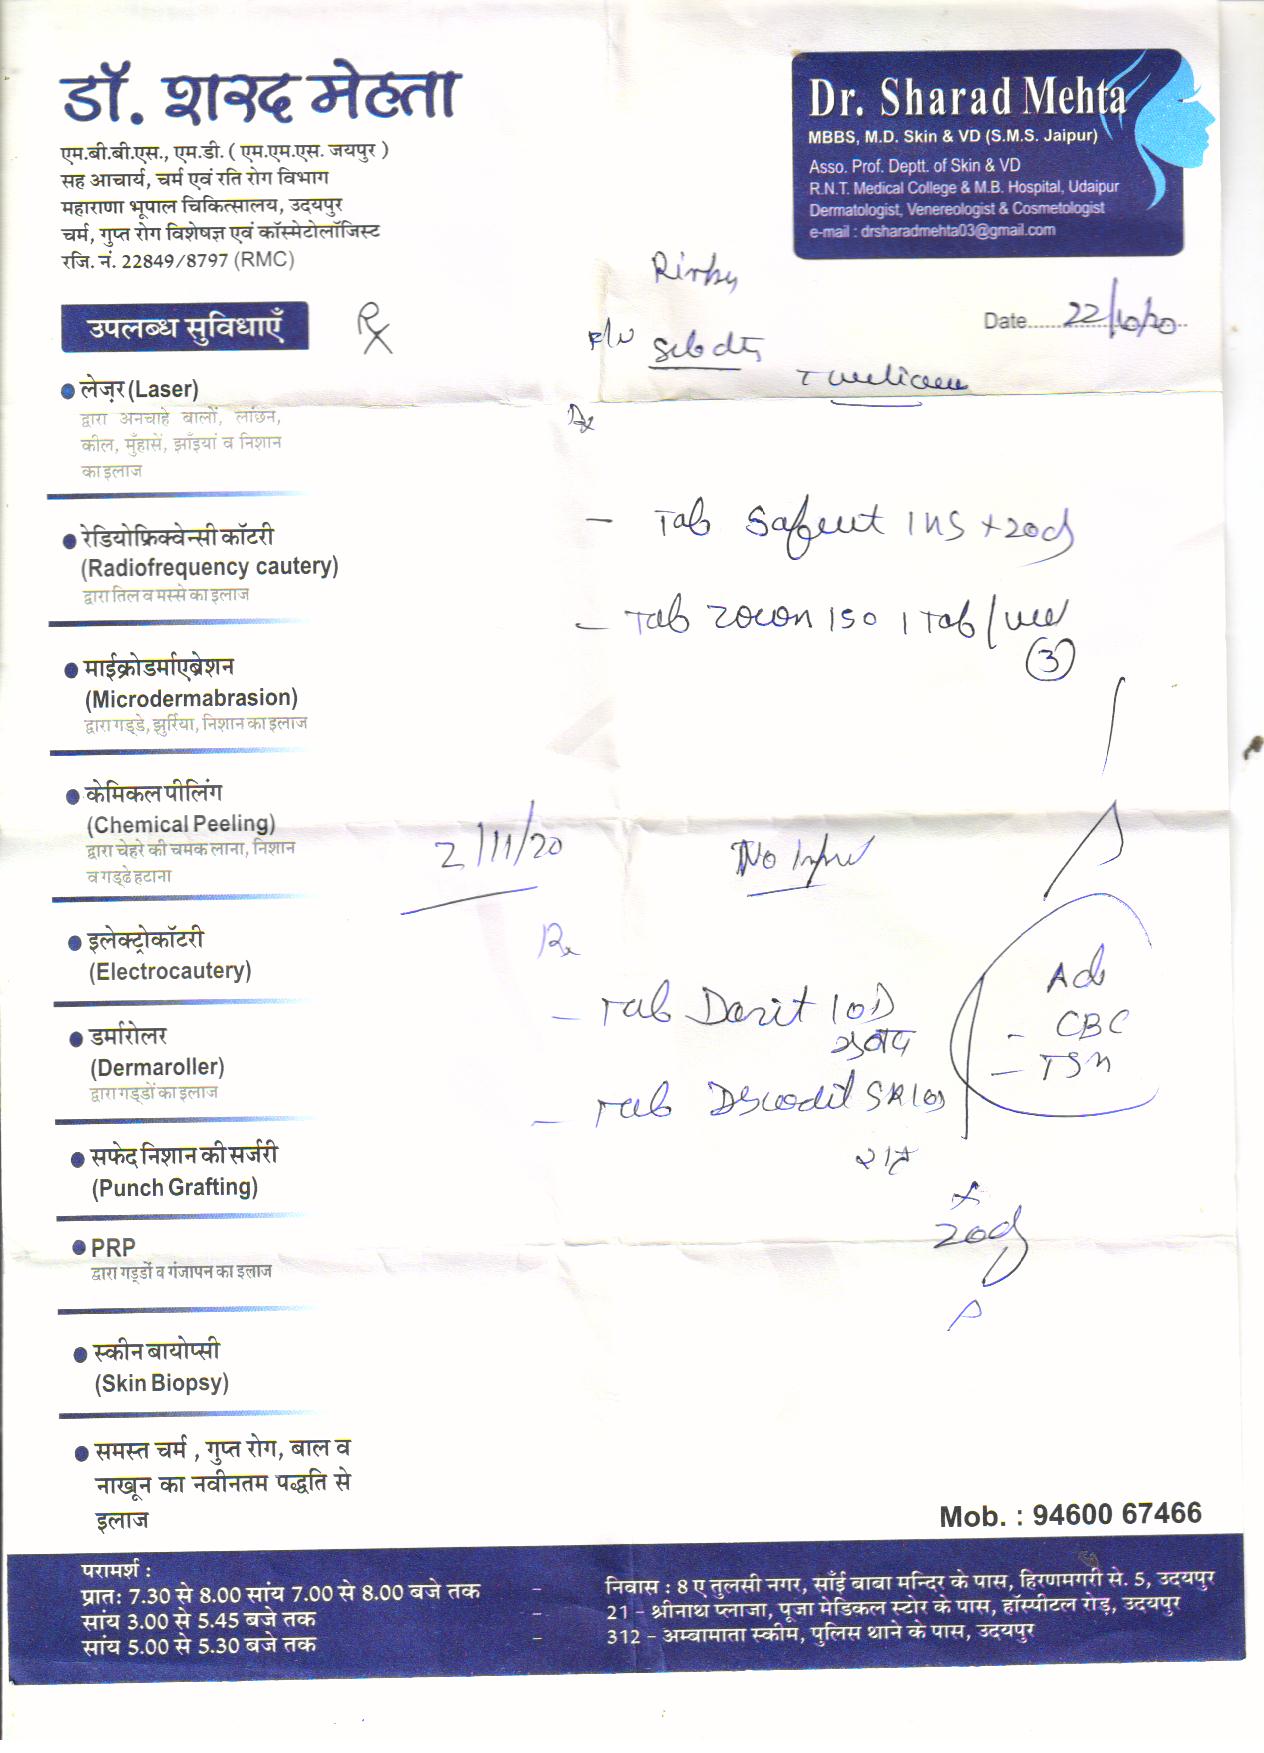 डॉ. शरद मेहता
एम.बी.बी.एस., एम.डी. ( एम.एम.एस. जयपुर )
सह आचार्य, चर्म एवं रति रोग विभाग
महाराणा भूपाल चिकित्सालय, उदयपुर
चर्म, गुप्त रोग विशेषज्ञ एवं कॉस्मेटोलॉजिस्ट
रजि. नं. 22849/8797 (RMC)
Dr. Sharad Mehta
MBBS, M.D. Skin & VD (S.M.S. Jaipur)
Asso. Prof. Deptt. of Skin & VD
R.N.T. Medical College & M.B. Hospital, Udaipur
Dermatologist, Venereologist & Cosmetologist
e-mail : drsharadmehta03@gmail.com
Date...... 22/10/20
Rx
Rx
- Tab 1 HS x 20d
- Tab Zocon 150 1 Tab/
3
2/11/20
No
Rx
- Tab 1OD
सुबह
- Tab SR
रात
x
20d
Adv
- CBC
- TSH
उपलब्ध सुविधाएँ
लेज़र (Laser)
द्वारा अनचाहे बालों, लांछन,
कील, मुँहासें, झाँइयां व निशान
का इलाज
रेडियोफ्रिक्वेन्सी कॉटरी
(Radiofrequency cautery)
द्वारा तिल व मस्से का इलाज
माईक्रोडर्माएब्रेशन
(Microdermabrasion)
द्वारा गड्डे, झुर्रिया, निशान का इलाज
केमिकल पीलिंग
(Chemical Peeling)
द्वारा चेहरे की चमक लाना, निशान
व गड्ढे हटाना
इलेक्ट्रोकॉटरी
(Electrocautery)
डर्मारोलर
(Dermaroller)
द्वारा गड्डों का इलाज
सफेद निशान की सर्जरी
(Punch Grafting)
PRP
द्वारा गड्डों व गंजापन का इलाज
स्कीन बायोप्सी
(Skin Biopsy)
समस्त चर्म , गुप्त रोग, बाल व
नाखून का नवीनतम पद्धति से
इलाज
Mob. : 94600 67466
परामर्श :
प्रातः 7.30 से 8.00 सांय 7.00 से 8.00 बजे तक - निवास : 8 ए तुलसी नगर, साँई बाबा मन्दिर के पास, हिरणमगरी से. 5, उदयपुर
सांय 3.00 से 5.45 बजे तक - 21 - श्रीनाथ प्लाजा, पूजा मेडिकल स्टोर के पास, हॉस्पीटल रोड़, उदयपुर
सांय 5.00 से 5.30 बजे तक - 312 - अम्बामाता स्कीम, पुलिस थाने के पास, उदयपुर